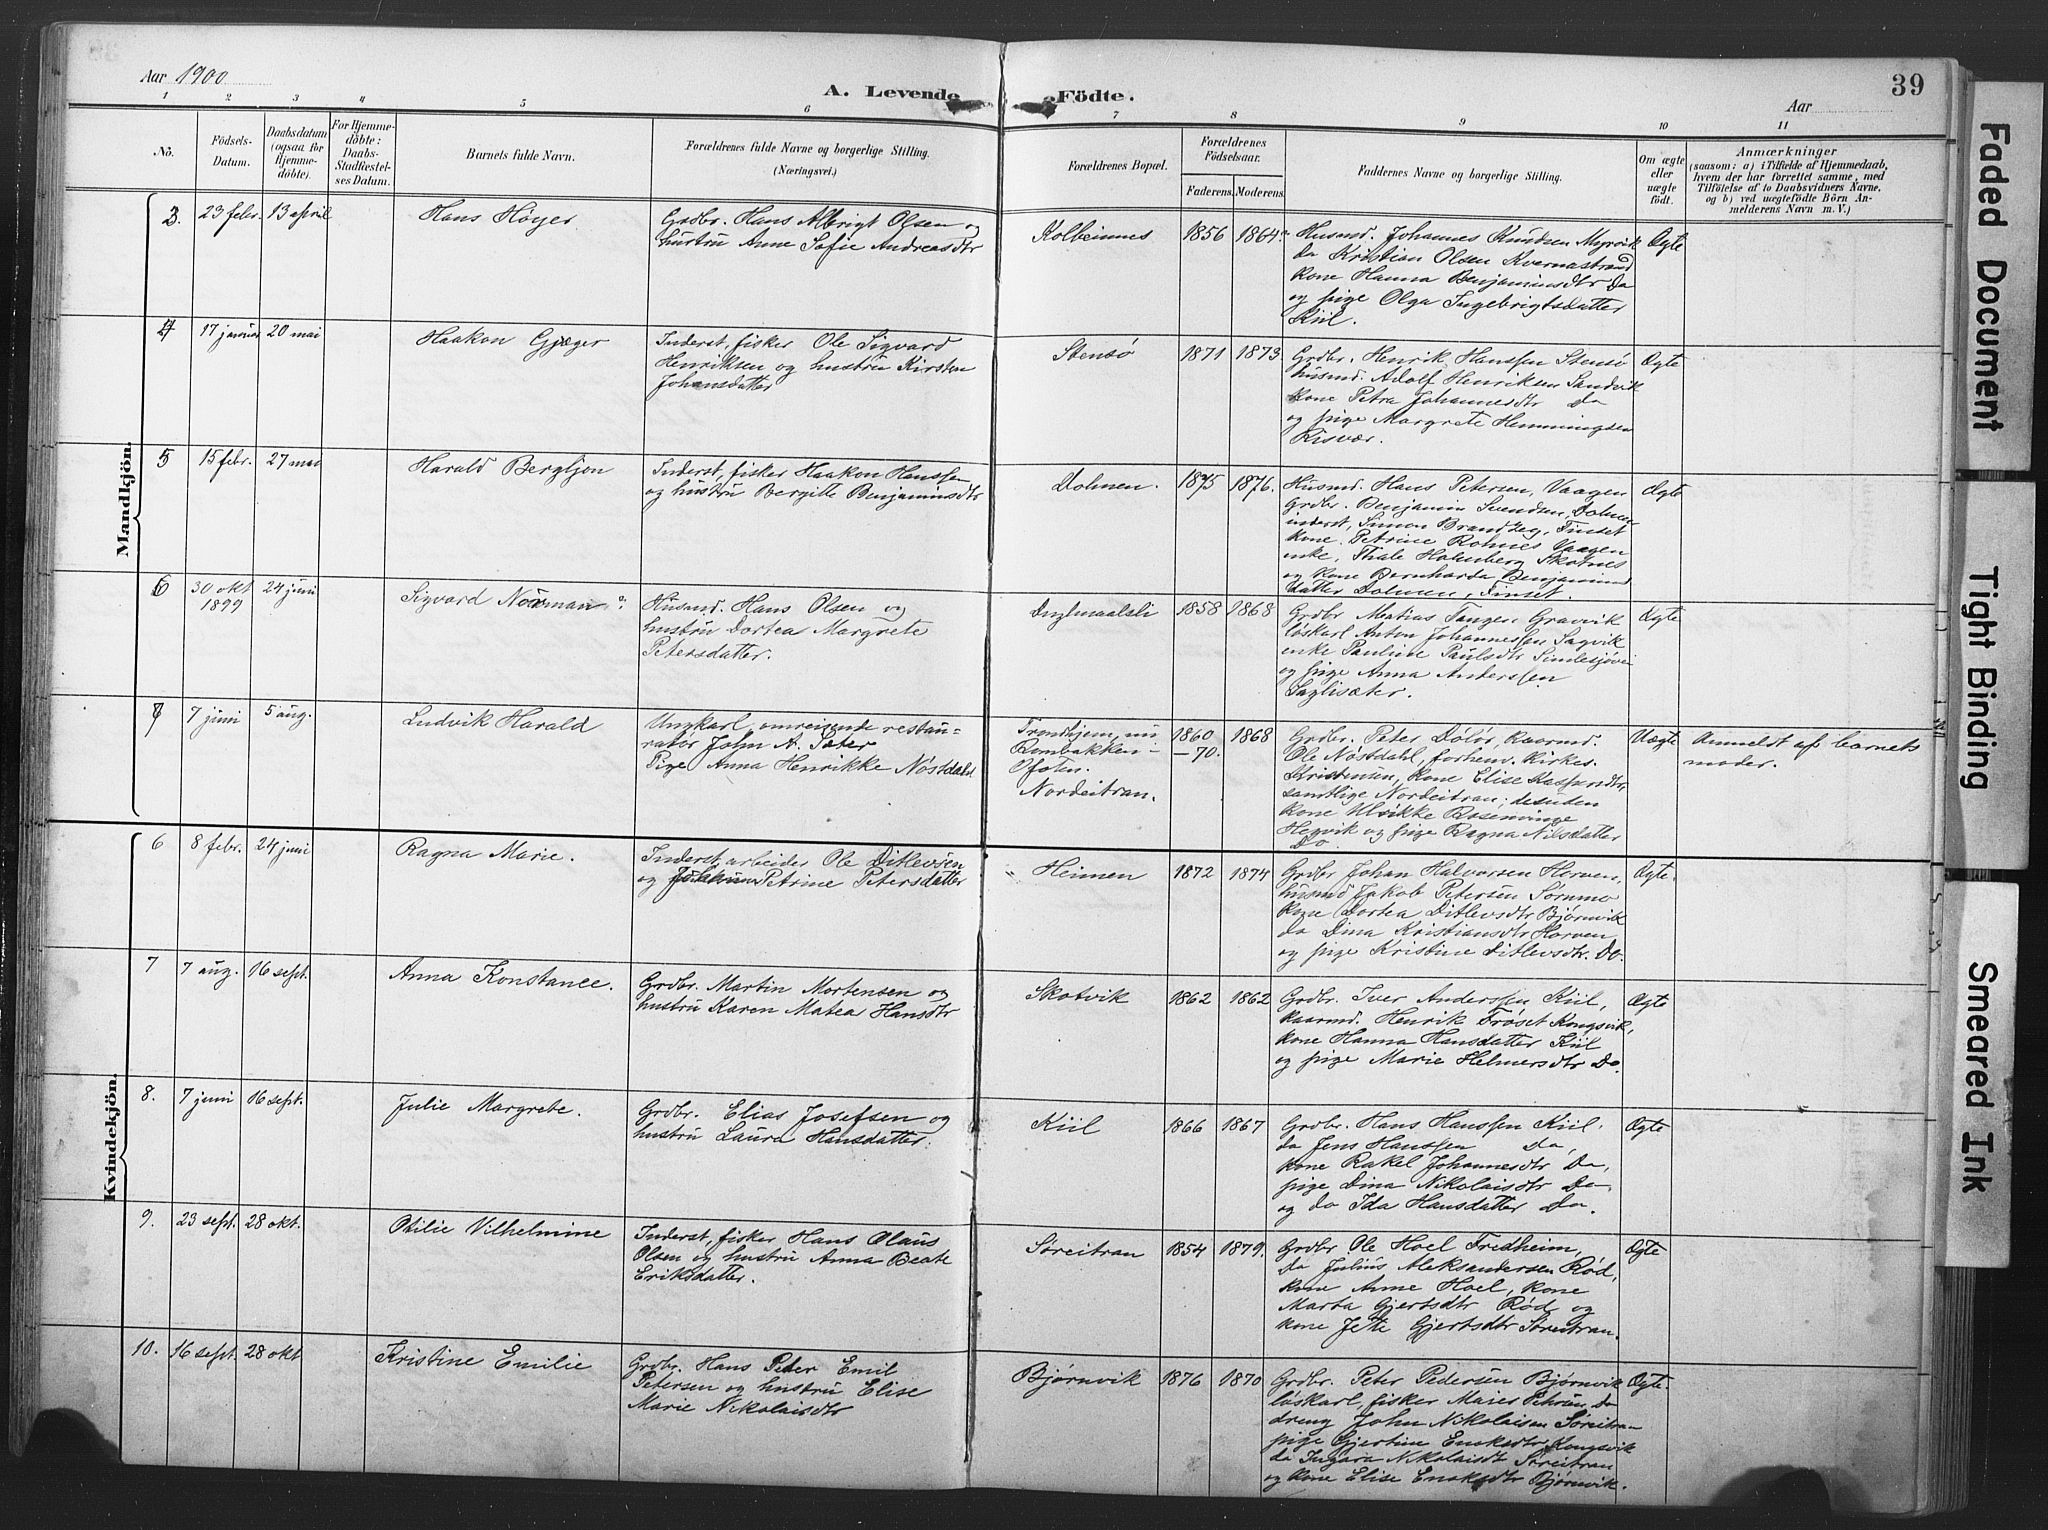 Aar 1900
A. Levende Födte.
39
Aar
1 2 3 4 5 6 7 8 9 10 11
No.
Födsels-
Datum.
Daabsdatum
(ogsaa for
Hjemme-
döbte).
For Hjemme-
döbte:
Daabs-
Stadfæstel-
ses Datum.
Barnets fulde Navn.
Forældrenes fulde Navne og borgerlige Stilling.
(Næringsvei.)
Forældrenes Bopæl.
Forældrenes
Födselsaar.
Faderens. Moderens.
Faddernes Navne og borgerlige Stilling.
Om ægte
eller
uægte
födt.
Anmærkninger
(saasom: a) i Tilfælde af Hjemmedaab,
hvem der har forrettet samme, med
Tilföielse af to Daabsvidners Navne,
og b) ved uægtefödte Börn An-
melderens Navn m. V.)
Mandkjön.
3. 23 febr. 13 april
Hans Höyer
Grdbr. Hans Albrigt Olsen og
hustru Anne Sofie Andreasdtr
Kolbeinnes
1856 1864
Husmd. Johannes Knudsen Myrvik
do Kristian Olsen Kvernastrand
kone Hanna Benjaminsdtr Do
og pige Olga Ingebrigtsdatter
Kiil.
Ægte
4 17 januar 20 mai
Haakon Gjæger
Inderst, fisker Ole Sigvard
Henriksen og hustru Kirsten
Johansdatter
Stensö
1871 1873
Grdbr. Henrik Hanssen Stensö
husmd. Adolf Henriksen Sandvik
kone Petra Johannesdtr Do
og pige Margrete Hemmingsen
Risvær.
Ægte
5 15 febr. 27 mai
Harald Bergljon
Inderst, fisker Haakon Hanssen
og hustru Bergitte Benjaminsdtr
Dolmen.
1875 1876.
Husmd. Hans Petersen, Vaagen
Grdbr. Benjamin Svendsen, Dolmen
inderst, Simon Brandzeg, Finset
kone Petrine Rotnes Vaagen
enke, Thale Holmberg Skotnes
og kone Bernharda Benjamins
datter Dolmen, Finset.
Ægte
6 30 okt 1899 24 juni
Sigvard Norman
Husmd. Hans Olsen og
hustru Dortea Margrete
Petersdatter.
1858 1868
Grdbr Matias Tangen Gravvik
löskarl Anton Johannessen Sagvik
enke Pauline Paulsdtr
og pige Anna Anderssen
Saglisæter.
Ægte
7 7 juni 5 aug.
Ludvik Harald
Ungkarl, omreisende restau-
ratör John A. Sæter
Pige Anna Henrikke Nöstdahl
Trondhjem, nu
Rombakken
Ofoten.
Nordeitran.
1860
-70. 1868
Grdbr. Peter Dölör, kaarmd.
Ole Nöstdahl, forhenv. kirkes.
Kristensen, kone Elise Kaspersdtr,
samtlige Nordeitran; desuden
kone Ulrikke Rosenvinge
Hegvik og pige Ragna Nilsdatter
Do
Uægte
Anmeldt af barnets
moder.
Kvindekjön.
6 8 febr. 24 juni
Ragna Marie.
Inderst, arbeider Ole Ditlevsen
og hustru Petrine Petersdatter
Heimen
1872 1874
Grdbr Johan Halvorsen Herven,
husmd Jakob Petersen Sörnmo
kone Dortea Ditlevsdtr Björnvik
do Dina Kristiansdtr Horven
og pige Kristine Ditlevsdtr. Do.
Ægte.
7 7 aug. 16 sept.
Anna Konstance.
Grdbr. Martin Mortensen og
hustru Karen Matea Hansdtr
Skotvik
1862 1862
Grdbr. Iver Anderssen Kiil,
kaarmd. Henrik Fröset Kongsvik,
kone Hanna Hansdatter Kiil
og pige Marie Helmersdtr Do.
Ægte
8. 7 juni 16 sept.
Julie Margrete.
Grdbr. Elias Josefsen og
hustru Laura Hansdatter.
Kiil
1866 1867
Grdbr. Hans Hanssen Kiil.
do Jens Hanssen Do,
kone Rakel Johannesdtr Do,
pige Dina Nikolaisdtr Do
og do Ida Hansdatter Do.
Ægte
9. 23 sept. 28 okt.
Otilie Vilhelmine
Inderst, fisker Hans Olaus
Olsen og hustru Anna Beate
Eriksdatter.
Söreitran
1854 1879.
Grdbr Ole Hoel Fredheim,
do Julius Aleksandersen Röd,
kone Anne Hoel, kone
Marta Gjertsdtr Röd og
kone Jete Gjertsdtr Söreitran.
Ægte
10. 16 sept. 28 okt
Kristine Emilie
Grdbr. Hans Peter Emil
Petersen og hustru Elise
Marie Nikolaisdtr
Björnvik
1876 1870
Grdbr. Peter Pedersen Björnvik
löskarl, fisker Maier Petersen Do
dreng John Nikolaisen Söreitran
pige Gjertine Enoksdtr Kongsvik
do Ingara Nikolaisdtr Söreitran
og kone Elise Enoksdtr Björnvik.
Ægte.
Faded Document
Tight Binding
Smeared Ink